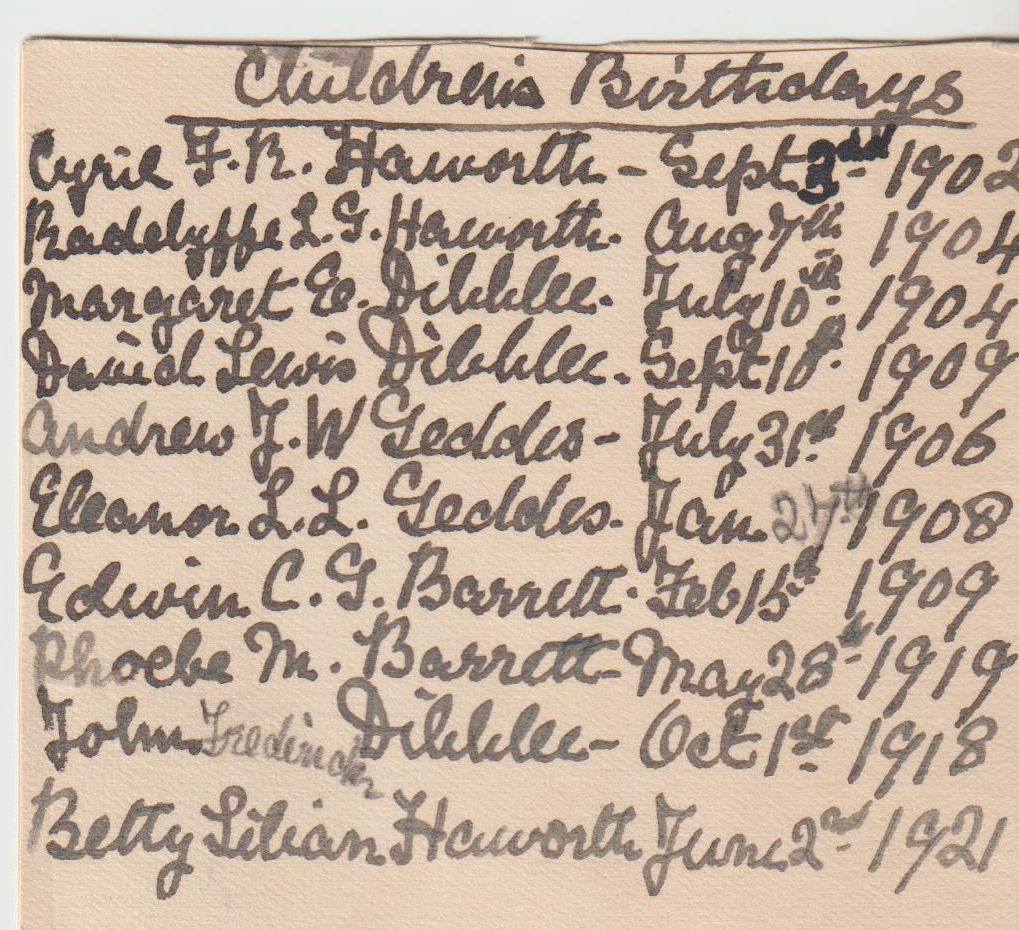 Children's Birthdays
Cyril F. R. Haworth - Sept 3rd - 1902
Radclyffe L. G. Haworth. Aug 7th 1904
Margaret E. Dibblee. July 10th 1904
David Lewis Dibblee. Sept 10th 1909
Andrew J. W Geddes - July 31st 1906
Eleanor L. L. Geddes. Jan 1908
Edwin C. G. Barrett. Feb 15th 1909
Phoebe M. Barrett - May 28th - 1919
John Frederick Dibblee - Oct 1st - 1918
Betty Lilian Haworth June 2nd - 1921